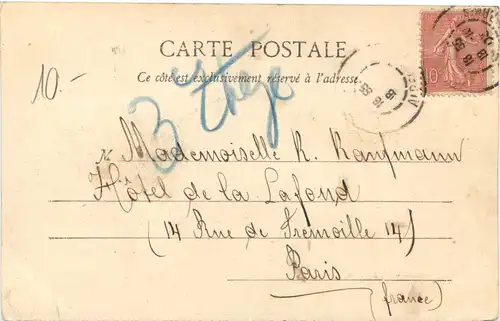 CARTE POSTALE
Ce côté est exclusivement réservé à l'adresse
10-
3
M. Mademoiselle R. Kaufmann
Hôtel de la Lafond
(14 Rue de Tremoille 14)
Paris
(france)